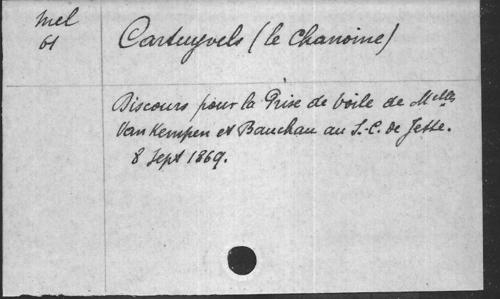 Mel
61
Cartuyvels (le Chanoine)
Discours pour la Prise de Voile de Melles
Van Kempen et Bauchau au S.-C. de Jette.
8 Sept 1869.